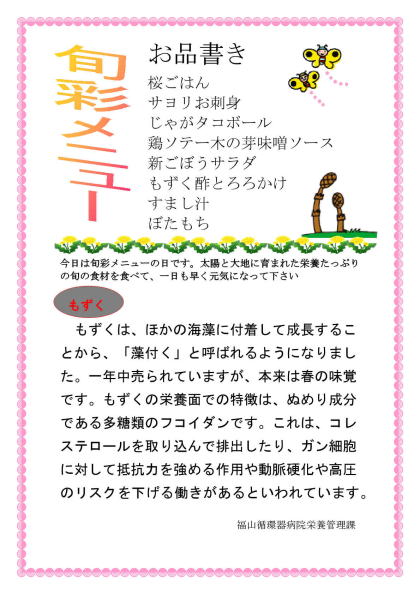 旬彩メニュー
お品書き
桜ごはん
サヨリお刺身
じゃがタコボール
鶏ソテー木の芽味噌ソース
新ごぼうサラダ
もずく酢とろろかけ
すまし汁
ぼたもち
今日は旬彩メニューの日です。太陽と大地に育まれた栄養たっぷり
の旬の食材を食べて、一日も早く元気になって下さい
もずく
もずくは、ほかの海藻に付着して成長するこ
とから、「藻付く」と呼ばれるようになりまし
た。一年中売られていますが、本来は春の味覚
です。もずくの栄養面での特徴は、ぬめり成分
である多糖類のフコイダンです。これは、コレ
ステロールを取り込んで排出したり、ガン細胞
に対して抵抗力を強める作用や動脈硬化や高圧
のリスクを下げる働きがあるといわれています。
福山循環器病院栄養管理課